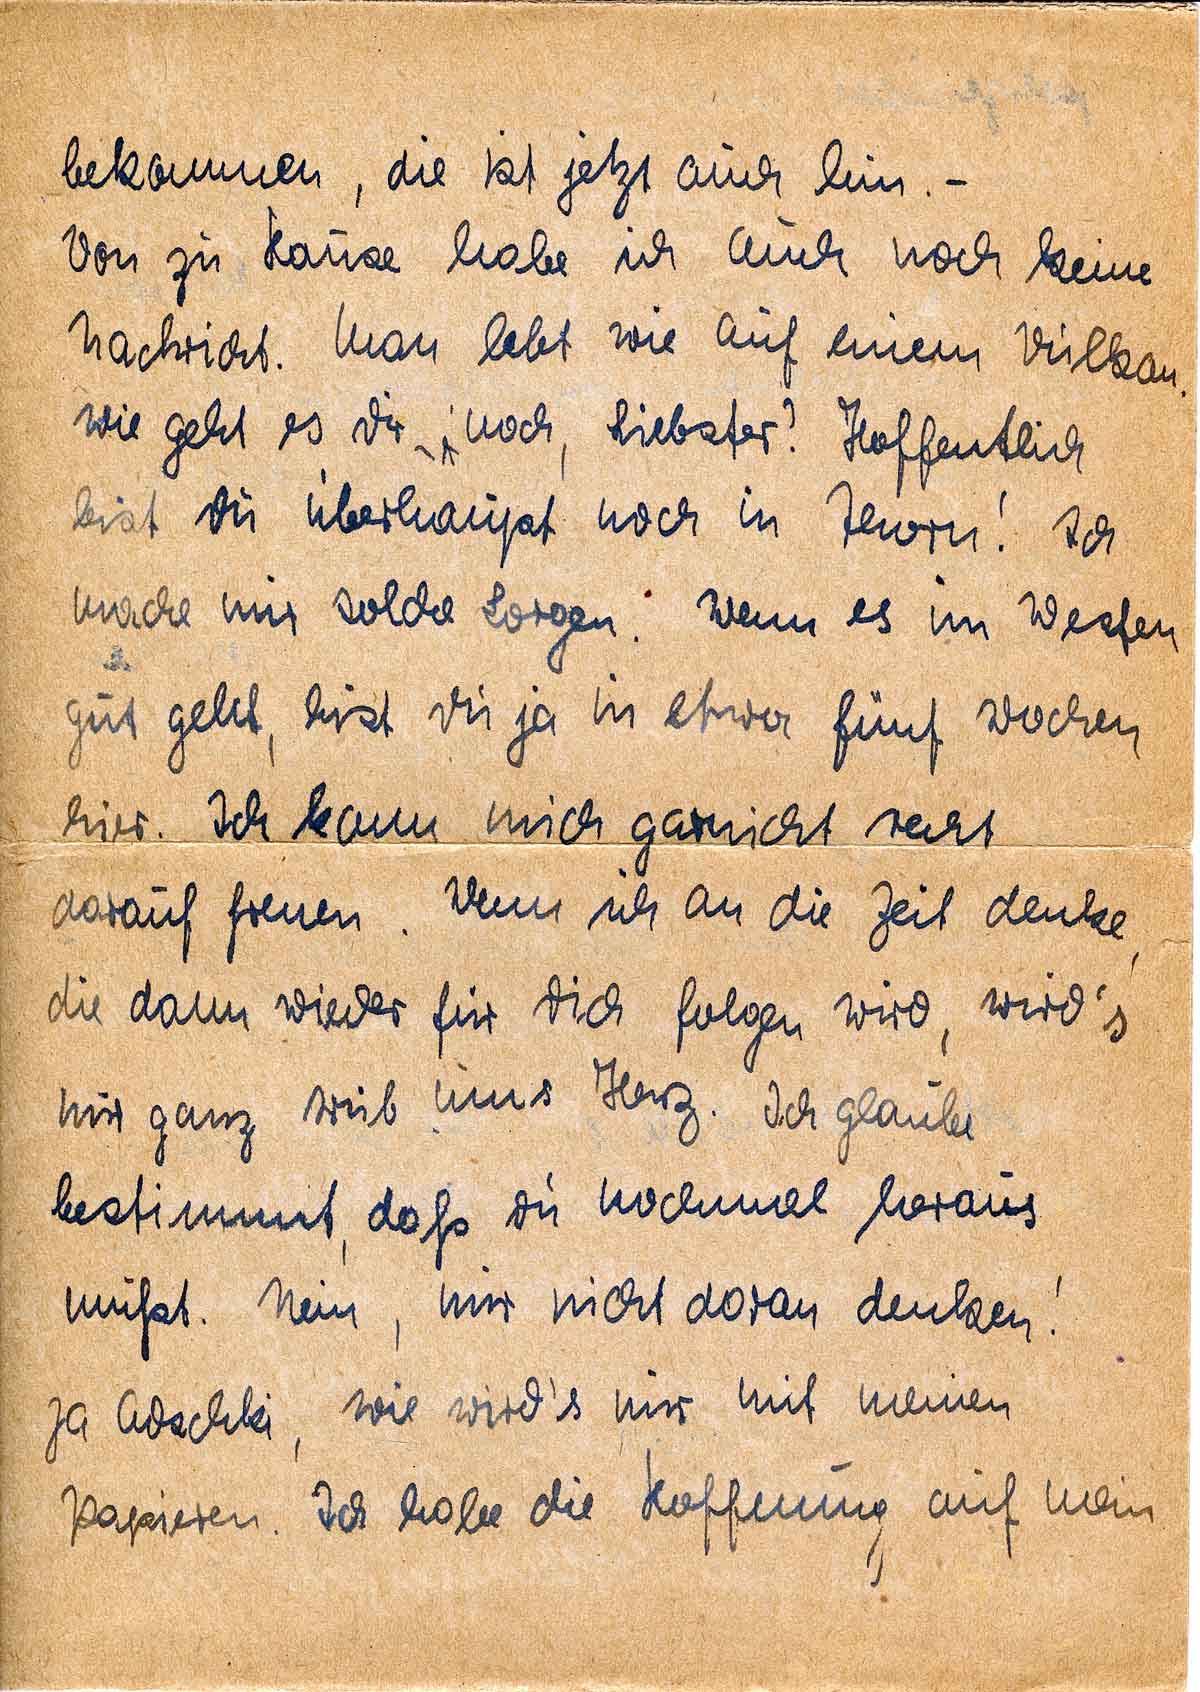 bekommen, die ist jetzt auch hin. –
Von zu Hause habe ich auch noch keine
Nachricht. Man lebt wie auf einem Vulkan.
Wie geht es Dir noch, Liebster? Hoffentlich
bist Du überhaupt noch in Thorn! Ich
mache mir solche Sorgen. Wenn es im Westen
gut geht, bist Du ja in etwa fünf Wochen
hier. Ich kann mich garnicht recht
darauf freuen. Wenn ich an die Zeit denke,
die dann wieder für Dich folgen wird, wird's
mir ganz trüb ums Herz. Ich glaube
bestimmt, daß Du nochmal heraus
mußt. Nein, nur nicht daran denken!
Ja Adschki, wie wird's nur mit meinen
Papieren. Ich habe die Hoffnung, auf mein